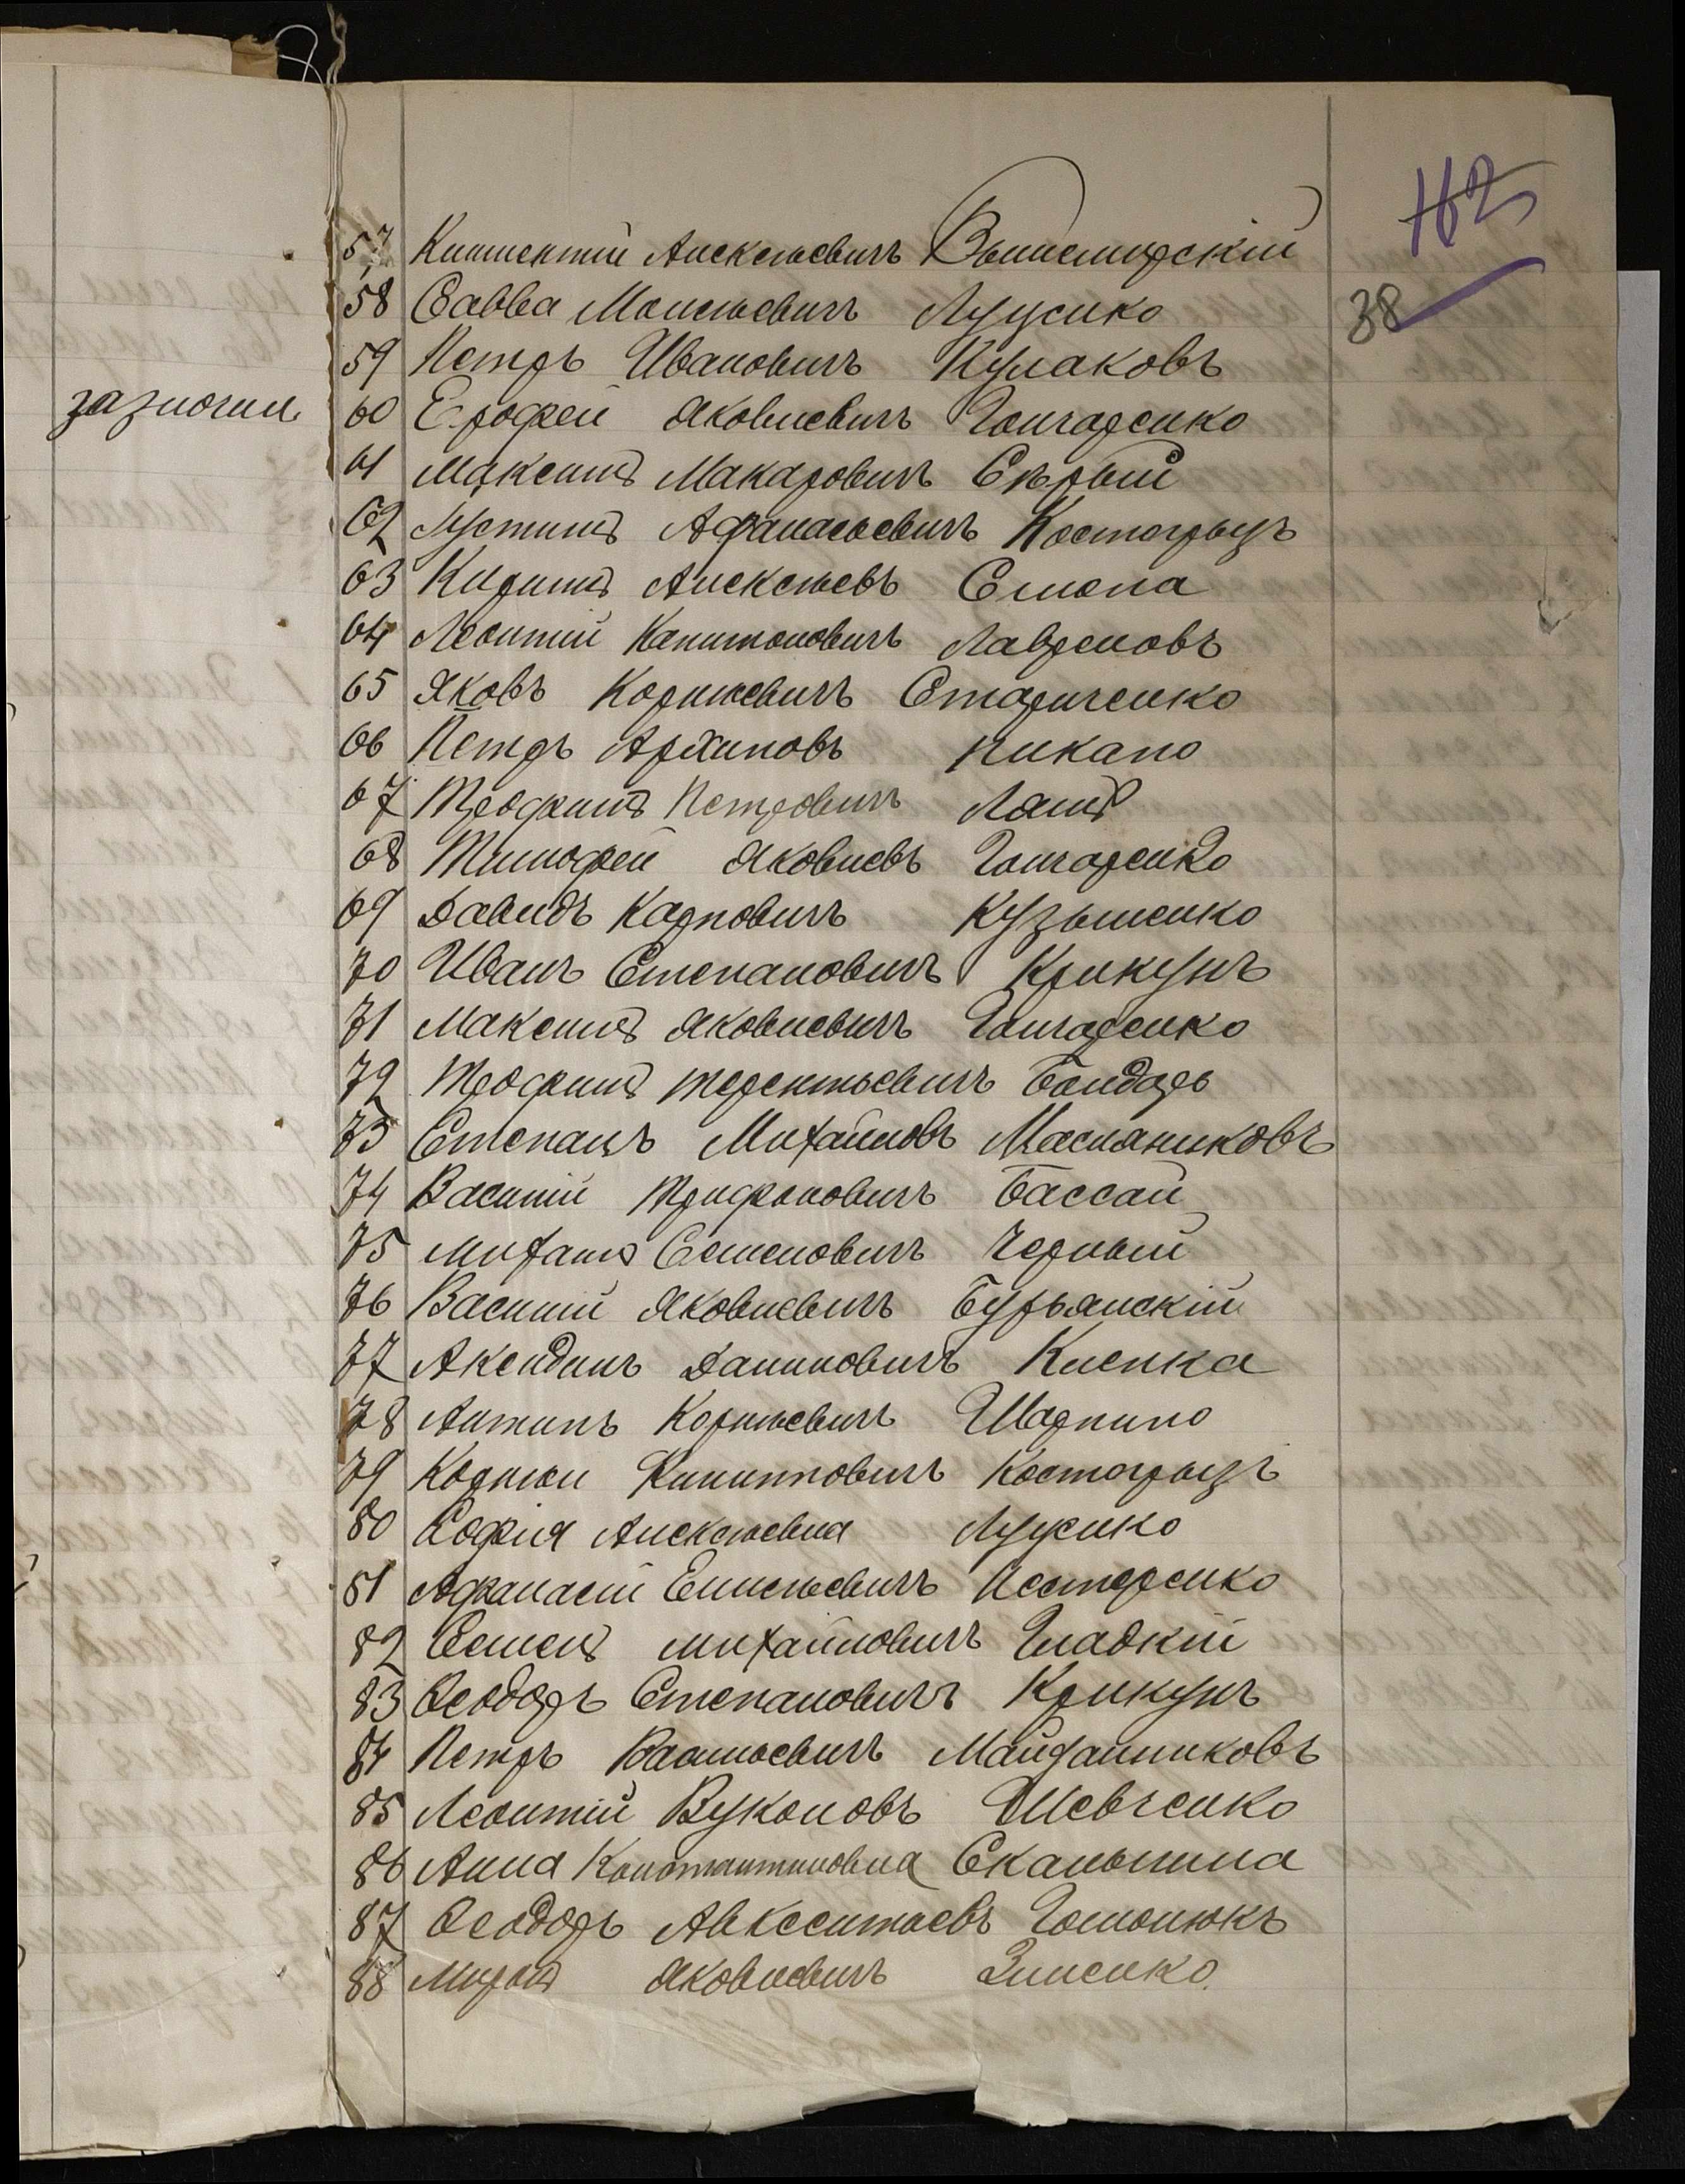 зазногил
162
38
57 Климентій Алексѣевичъ Вышемирскій
58 Савва Моисѣевичъ Луценко
59 Петръ Ивановичъ Кулаковъ
60 Ерофей Яковлевичъ Гончаренко
61 Максимъ Макаровичъ Сѣрый
62 Лустинъ Афанасьевичъ Костогрызъ
63 Кирилъ Алексѣевъ Слюпа
64 Леонтій Капитоновичъ Лавреновъ
65 Яковъ Корнѣевичъ Стариченко
66 Петръ Архиповъ Пикало
67 Трофимъ Петровичъ Ламъ
68 Тимофей Яковлевъ Гончаренко
69 Давидъ Карповичъ Кузьменко
70 Иванъ Степановичъ Крикунъ
71 Максимъ Яковлевичъ Гончаренко
72 Трофимъ Терентьевичъ Бондарь
73 Степанъ Михайловъ Масляниковъ
74 Василій Трифоновичъ Бассай
75 Михаилъ Семеновичъ Черный
76 Василий Яковлевичъ Бурьянскій
77 Акендинъ Даниловичъ Клепка
78 Антипъ Корнѣевичъ Шарпило
79 Корнѣи Филипповичъ Костогрызъ
80 Софія Алексѣевна Луценко
81 Афанасій Елисѣевичъ Нестеренко
82 Семенъ Михайловичъ Гладкій
83 Ѳеодоръ Степановичъ Крикунъ
84 Петръ Васильевичъ Майданниковъ
85 Леонтій Вуколовъ Шевченко
86 Анна Константиновна Скальпина
87 Ѳеодоръ Авксентьевъ Гомонюкъ
88 Миронъ Яковлевичъ Зинченко